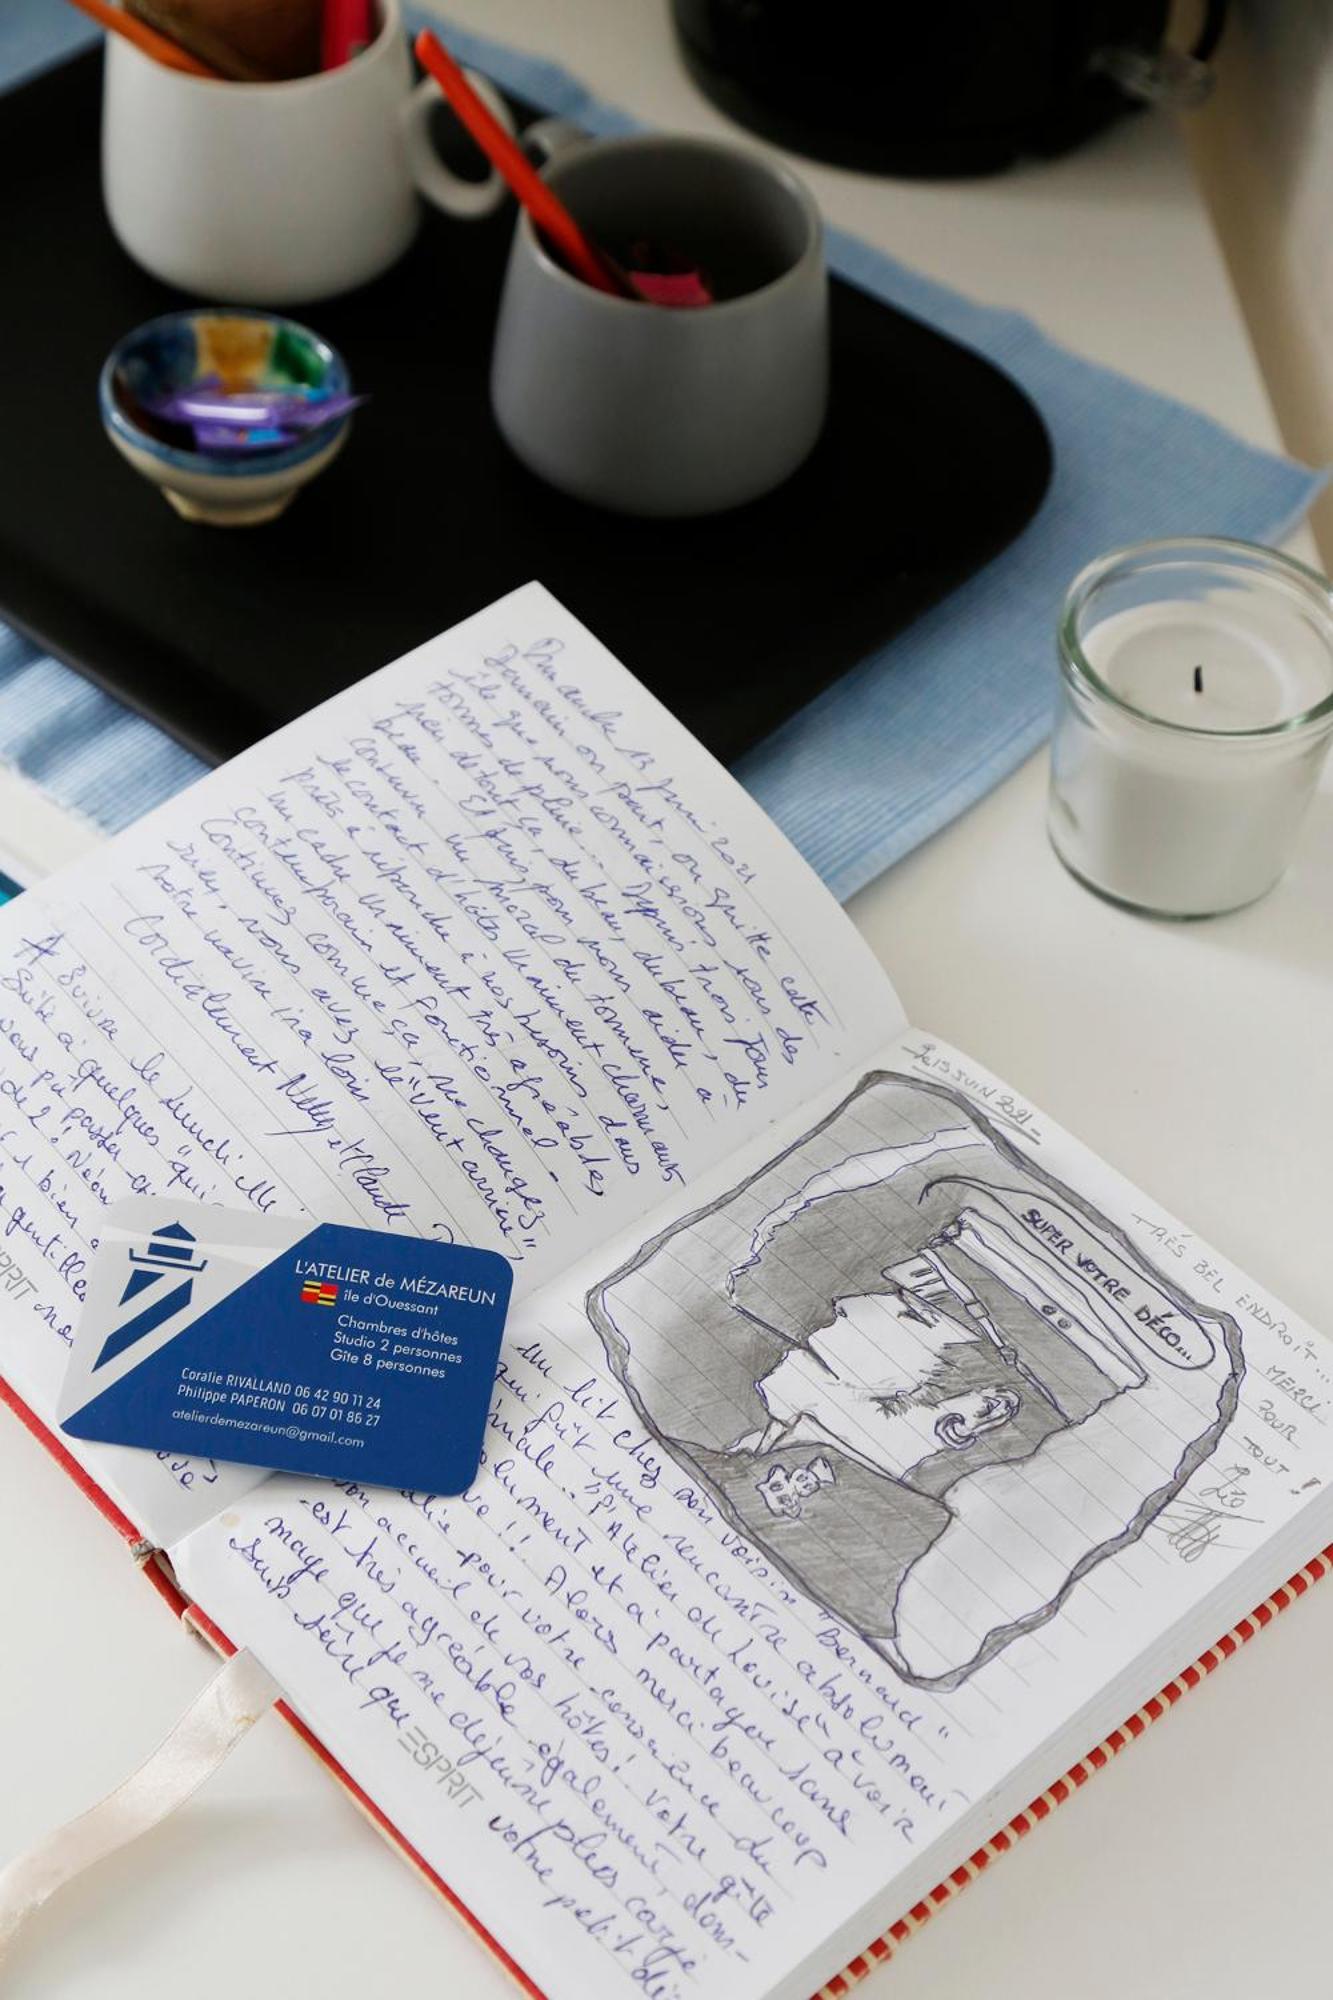 Dimanche 13 Juin 2021
Demain on part, on quitte cette
île que nous connaissions sous des
tonnes de pluie... Depuis trois jours
peu de tout ça, du beau, du beau, du
beau. Et puis pour nous aider à
contenir un moral du tonnerre,
le contact d'hôtes vraiment charmants
prêts à répondre à nos besoins dans
un cadre vraiment très agréable,
contemporain et fonctionnel -
Continuez comme ça, ne changez
rien, vous avez le "vent arrière",
votre navire ira loin
Cordialement Nelly et Claude
A suivre le Lundi elle
Suite à quelques "qui
vous pu poster
de 2 !
1 bien
gentille
ESPRIT
L'ATELIER de MÉZAREUN
île d'Ouessant
Chambres d'hôtes
Studio 2 personnes
Gîte 8 personnes
Coralie RIVALLAND 06 42 90 11 24
Philippe PAPERON 06 07 01 86 27
atelierdemezareun@gmail.com
Le 13 JUIN 2021
SUPER VOTRE DÉCO...
TRÈS BEL ENDROIT...
MERCI
POUR
TOUT !
Léo
du lit chez son voisin "Bernard"
qui fut une rencontre absolument
"l'Atelier de Louise" à voir
absolument et à partager sans
!! Alors merci beaucoup
pour votre conscience du
son accueil de vos hôtes ! Votre gîte
est très agréable également, dom-
mage que je ne déjeûne plus car je
suis sûre que votre petit dé-
ESPRIT